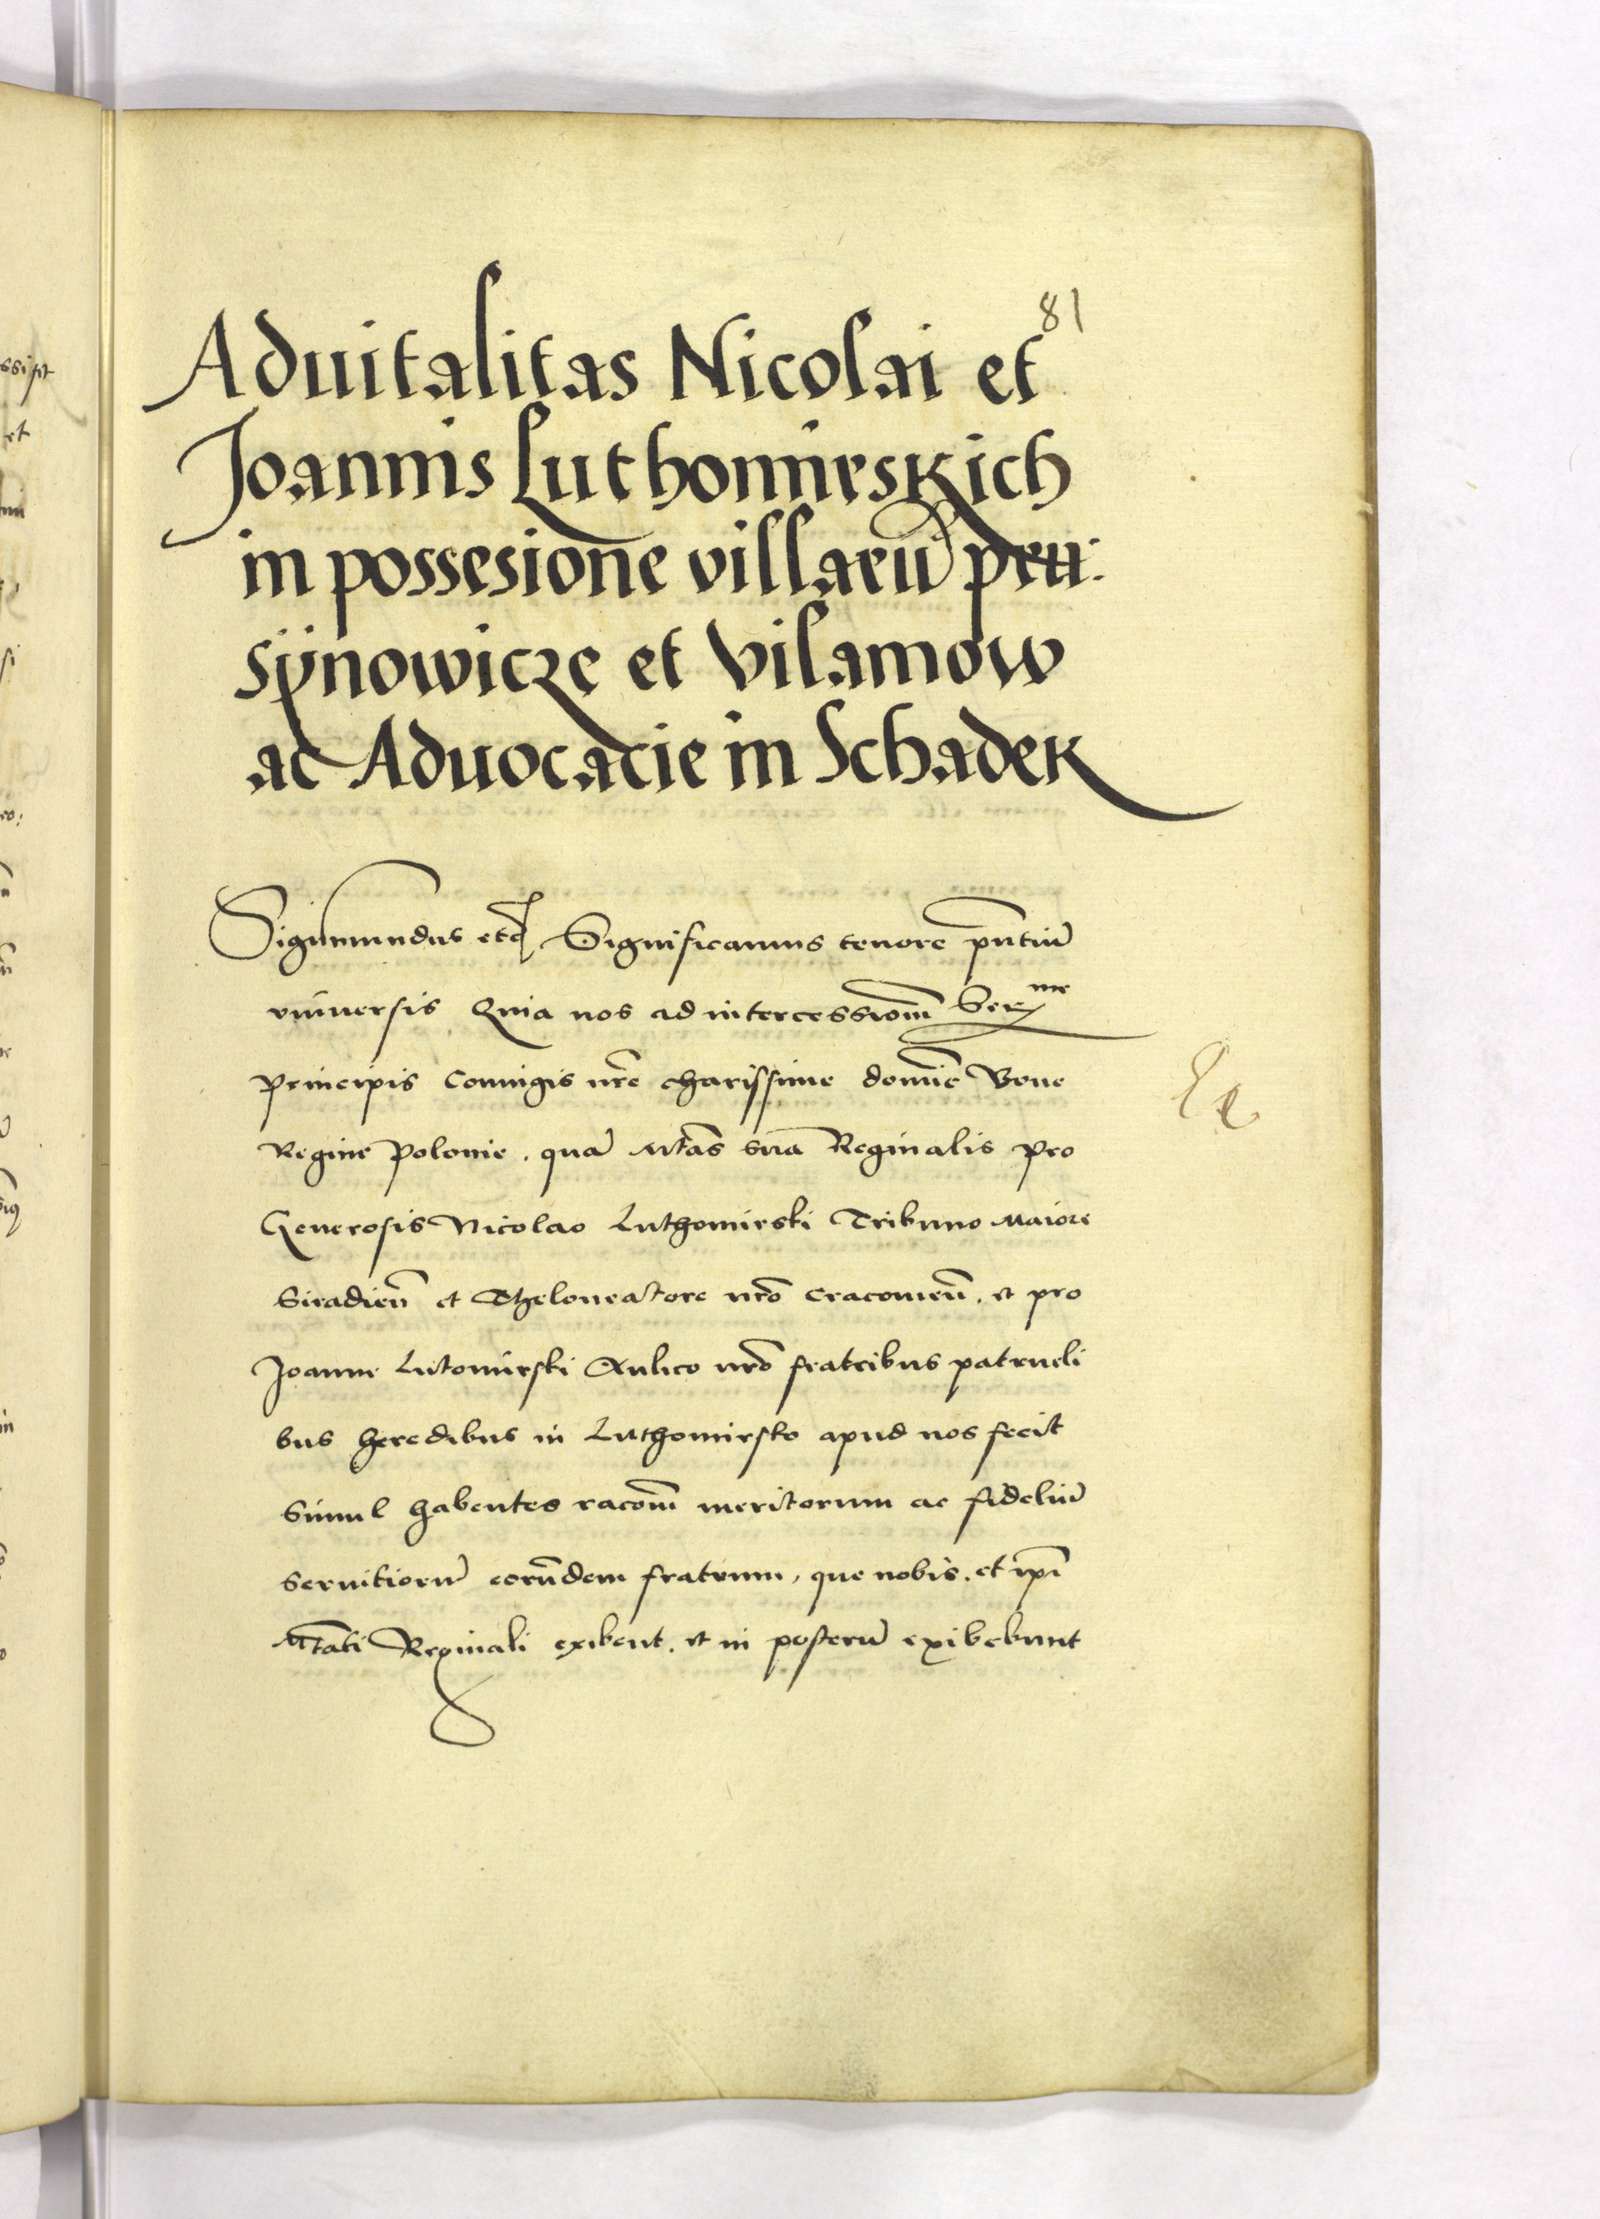 81
Aduitalitas Nicolai et
Joannis Luthomirskich
in possesione villarũ pru:
sÿnowicze et Vilamow
ac Aduocacie in Schadek
Sigismundus etc Significamus tenore pñtiũ
vniuersis Quia nos ad intercessionẽ Serme
principis Coniugis nr̃e charissime domĩe Bone
Regine Polonie, quã Mtãs suã Reginalis pro
Generosis Nicolao Luthomirski Tribuno Maiore
Siradieñ et Theloneatore nr̃o Cracouieñ. et pro
Joanne Lutomirski Aulico nr̃o fratribus patrueli
bus heredibus in Luthomirsko apud nos fecit
Simul habentes racõm meritorum ac fideliũ
Seruitiorũ eorũdem fratrum, que nobis, et ip̃i
Mtãti Reginali exibent, et in posterũ exibebunt